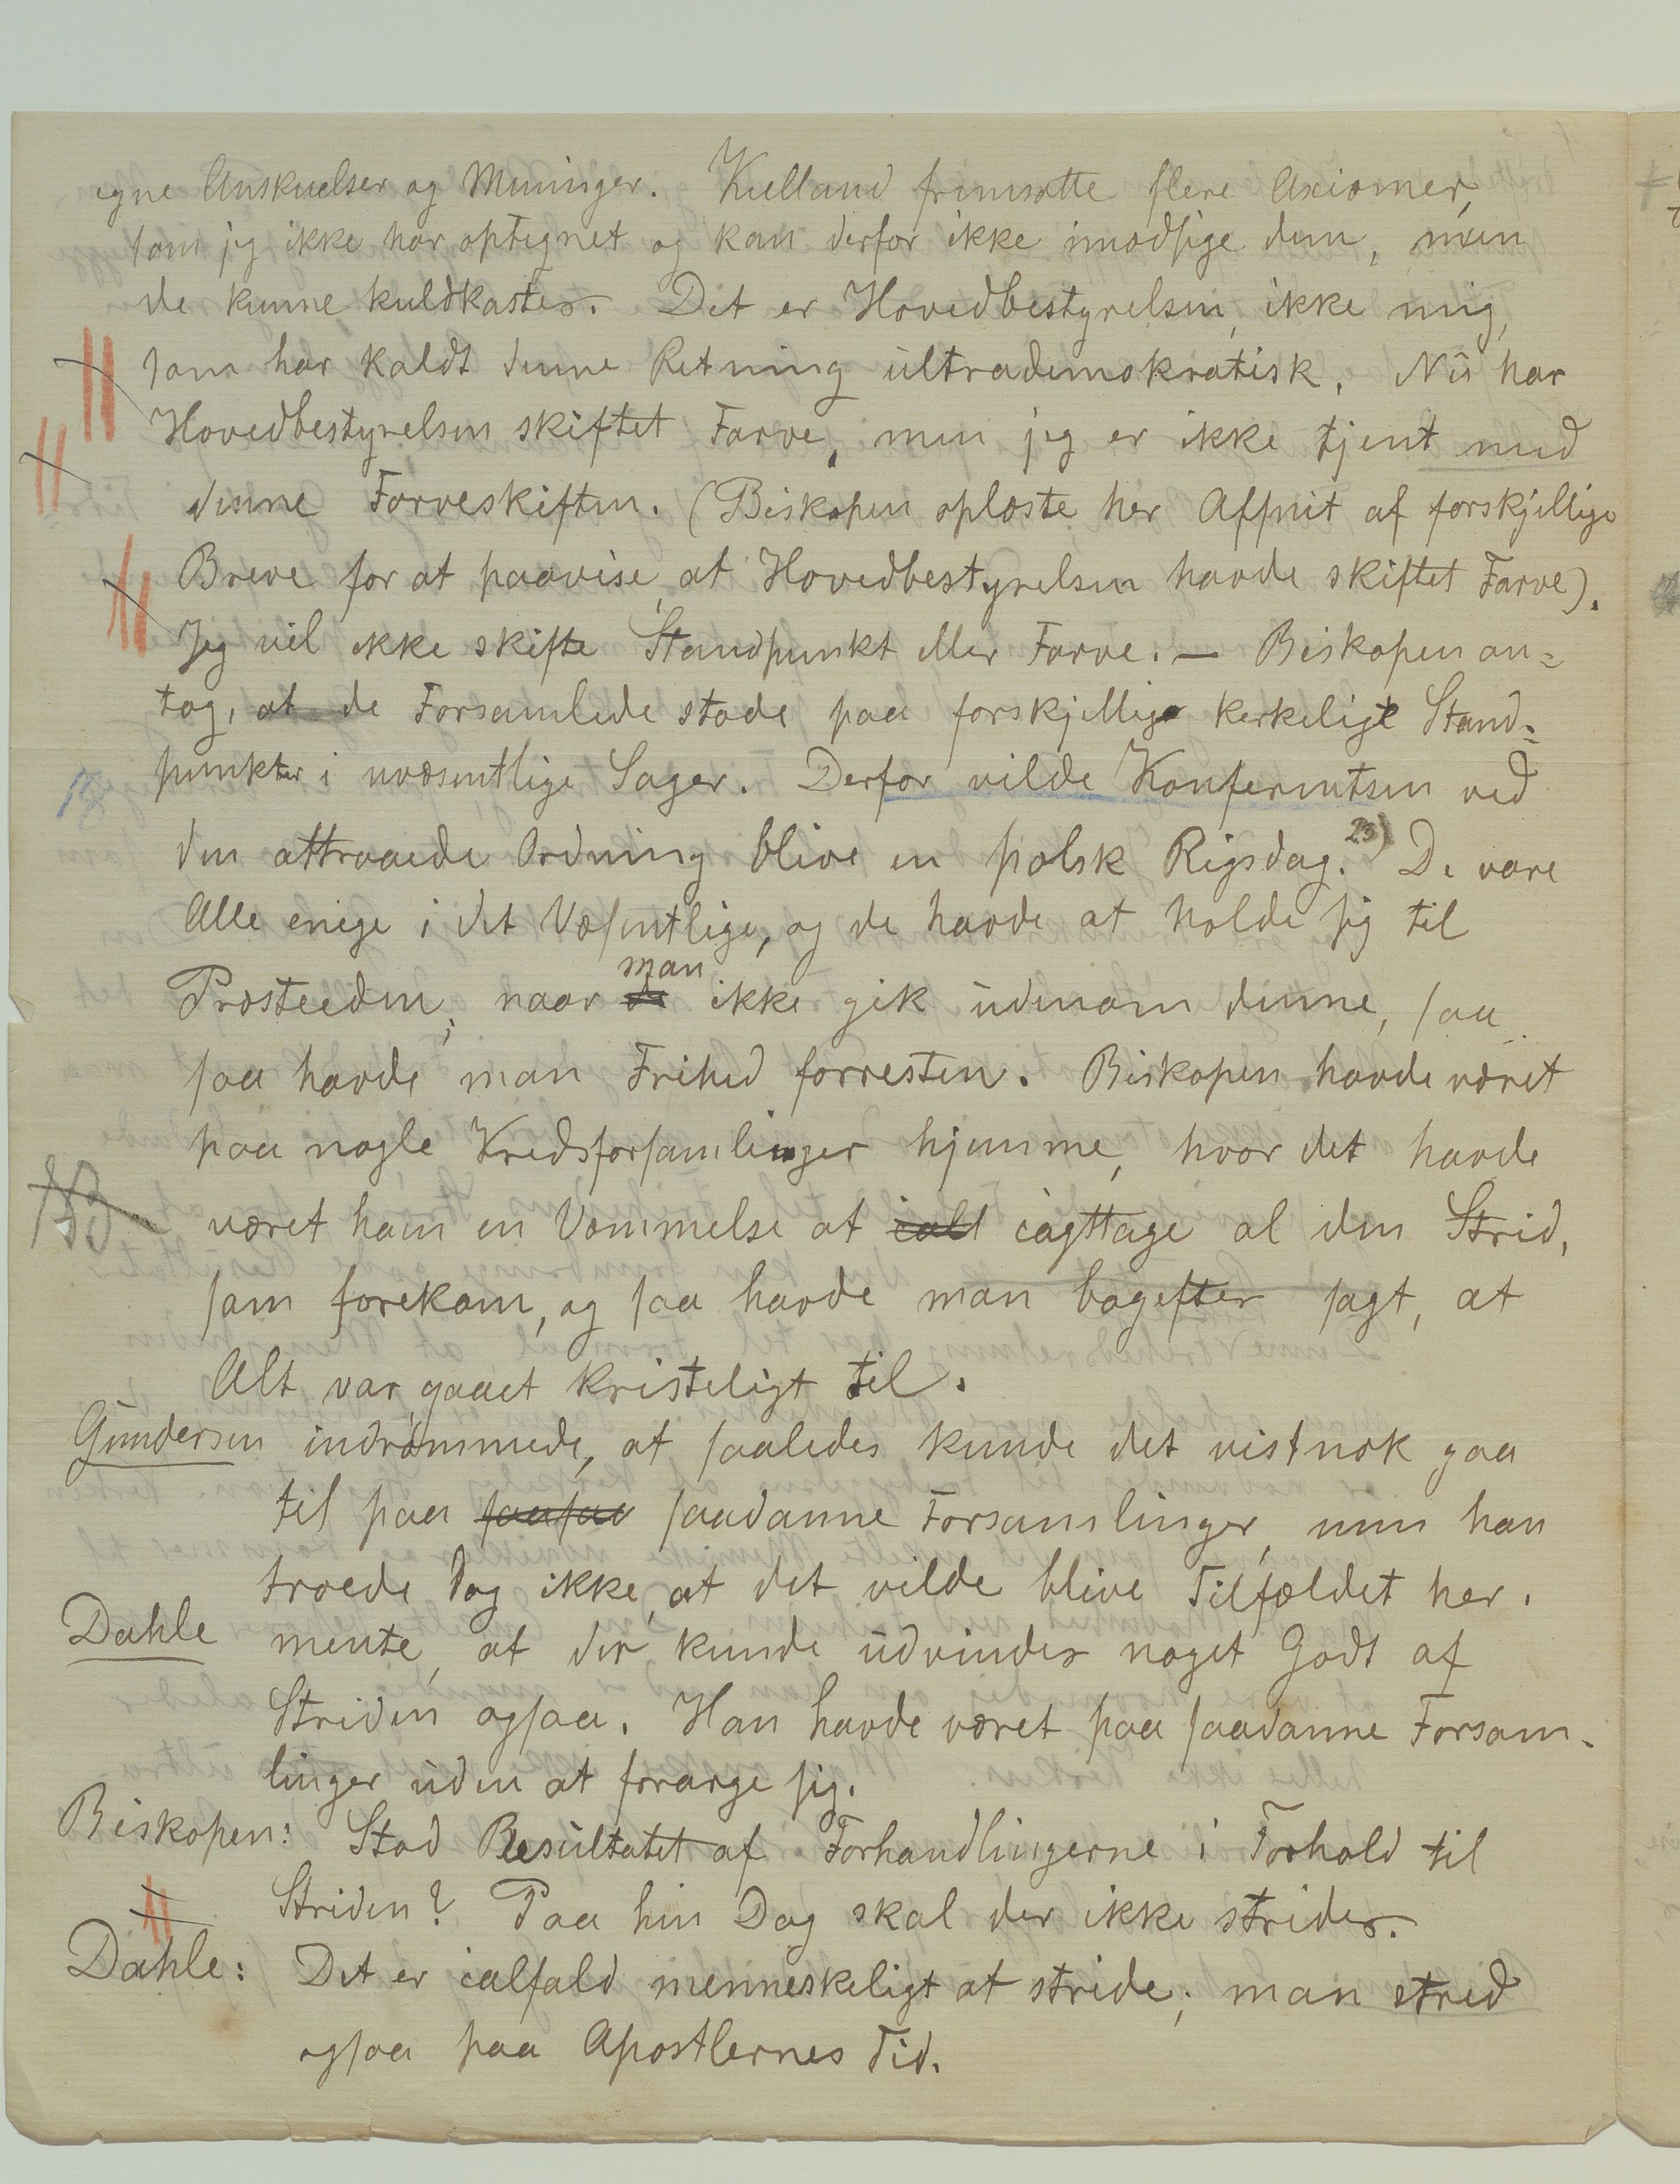 egne Anskuelser og Meninger. Kielland fremsatte flere Axiomer,
som jeg ikke har optegnet og kan derfor ikke imodsige dem, men
de kunne kuldkastes. Det er Hovedbestyrelsen, ikke mig,
som har kaldt denne Retning ultrademokratisk. Nu har
Hovedbestyrelsen skiftet Farve, men jeg er ikke tjent med
denne Farveskiften. (Biskopen oplæste her Afsnit af forskjellige
Breve for at paavise, at Hovedbestyrelsen havde skiftet Farve).
Jeg vil ikke skifte Standpunkt eller Farve. — Biskopen an=
tog, at de Forsamlede stode paa forskjellige kerkelige Stand=
punkter i uvæsentlige Sager. Derfor vilde Konferentsen ved
den attraaede Ordning blive en polsk Rigsdag. 23) De vare
Alle enige i det Væsentlige, og de havde at holde sig til
man
Præsteeden; naar de ikke gik udenom denne, saa
saa havde man Frihed forresten. Biskopen havde været
paa nogle Kredsforsamlinger hjemme, hvor det havde
NB været ham en Væmmelse at iakt iagttage al den Strid,
som forekom, og saa havde man bagefter sagt, at
Alt var gaaet kristeligt til.
Gundersen indrømmede, at saaledes kunde det vistnok gaa
til paa saasaa saadanne Forsamlinger, men han
troede dog ikke, at det vilde blive Tilfældet her.
Dahle mente, at der kunde udvindes noget Godt af
Striden ogsaa. Han havde været paa saadanne Forsam-
linger uden at forarge sig.
Biskopen: Stod Resultatet af Forhandlingerne i Forhold til
Striden? Paa hin Dag skal der ikke strides.
Dahle: Det er ialfald menneskeligt at stride; man stred
ogsaa paa Apostlernes Tid.